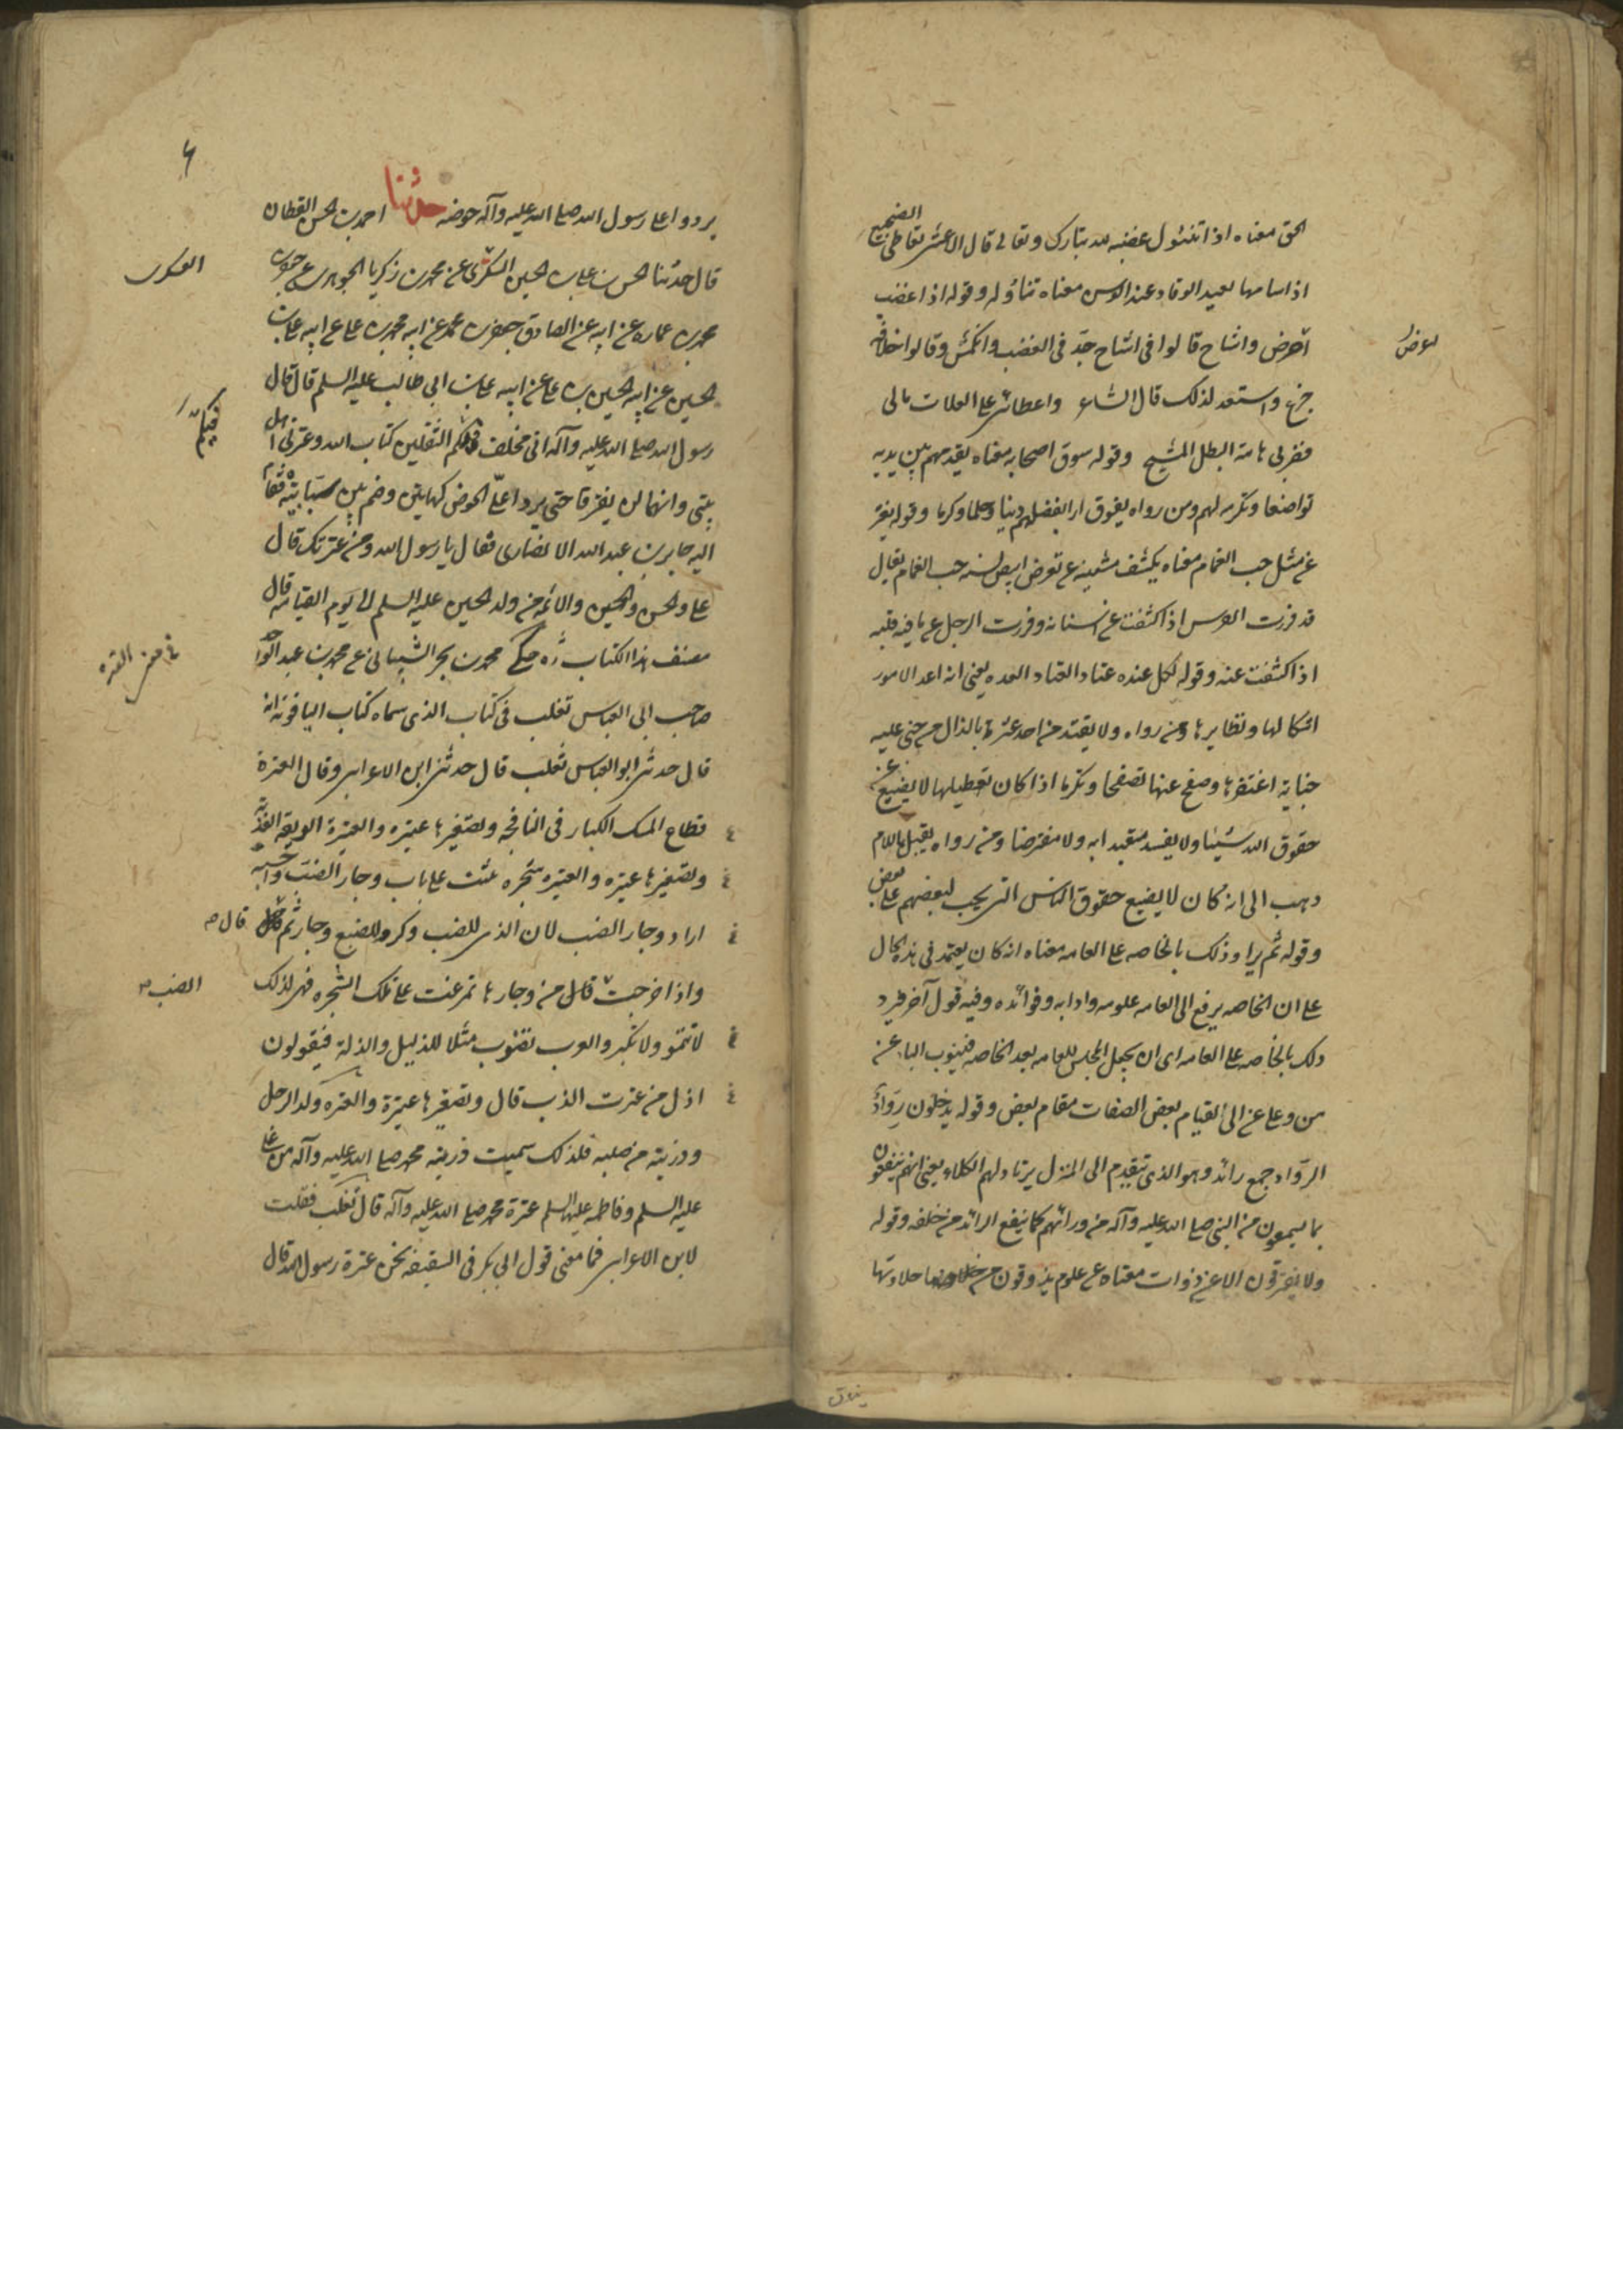 الحق معناه اذا تنوول غضب لله تبارك وتعالى قال الاعشى تعاطى الضجيع
اذا سامها بعيد الرقاد وعند الوسن معناه تناوله وقوله اذا غضب
اعرض واشاح قالوا في اشاح جد في الغضب وانكمش وقالوا
جزع واستعد لذلك قال الشاعر واعطائي على العلات مالي
وضربي هامة البطل المشيح وقوله يسوق اصحابه معناه يقدمهم بين يديه
تواضعا وتكرمة لهم ومن رواه يفوق اراد يفضلهم دينا وحلما وكرما وقوله يفتر
عن مثل حب الغمام معناه يكشف شفتيه عن ثغر ابيض يشبه حب الغمام يقال
قد فررت الفرس اذا كشفت عن اسنانه وفررت الرجل عما في قلبه
اذا كشفت عنه وقوله لكل عنده عتاد العتاد العده يعني انه اعد للامور
اشكالها ونظايرها ومن رواه ولا يقيد من احد عثرة بالدال من جنى عليه
جناية اغتفرها وصفح عنها تصفحا وتكرما اذا كان تعطيلها لا يضيع من
حقوق الله شيئا ولا يفسد متعبدا به ولا مفترضا ومن رواه يقيل باللام
ذهب الى انه كان لا يضيع حقوق الناس التي يجب لبعضهم على بعض
وقوله ثم يرد ذلك بالخاصه على العامه معناه انه كان يعتمد في هذه الحال
على ان الخاصه يرفع الى العامه علومه وادابه وفوائده وفيه قول آخر فيرد
ذلك بالخاصه على العامه اى ان يجعل المجلس للعامه بعد الخاصه فينوب الباء عن
من وعلى عن الى لقيام بعض الصفات مقام بعض وقوله يدخلون روادا
الرواد جمع رائد وهو الذي يتقدم الى المنزل يرتاد لهم الكلاء يعني انهم ينفعون
بما يسمعون من النبي صلى الله عليه وآله من ورائهم كما ينفع الرائد من خلفه وقوله
ولا يفترقون الا عن ذواق معناه عن علوم يذوقون من حلاوتها
لعرض
يذاق
٦
يردوا على رسول الله صلى الله عليه وآله حوضه حدثنا احمد بن الحسن القطان
قال حدثنا الحسن بن علي بن الحسين السكرى عن محمد بن زكريا الجوهري عن جعفر بن
محمد بن عماره عن ابيه عن الصادق جعفر بن محمد عن ابيه محمد بن علي عن ابيه علي بن
الحسين عن ابيه الحسين بن علي عن ابيه علي بن ابي طالب عليه السلم قال قال
رسول الله صلى الله عليه وآله اني مخلف فيكم الثقلين كتاب الله وعترتي اهل
بيتي وانهما لن يفترقا حتى يردا علي الحوض كهاتين وضم بين سبابتيه فقام
اليه جابر بن عبد الله الانصارى فقال يا رسول الله ومن عترتك قال
علي والحسن والحسين والائمة من ولد الحسين عليه السلم الى يوم القيامه قال
مصنف هذا الكتاب ره حكى محمد بن بحر الشيباني عن محمد بن عبد الواحد
صاحب ابي العباس ثعلب في كتاب الذي سماه كتاب الياقوته انه
قال حدثني ابو العباس ثعلب قال حدثني ابن الاعرابي وقال العترة
قطاع المسك الكبار في النافجه وتصغيرها عتيره والعترة الريقه العذبة
وتصغيرها عتيره والعتره شجره تنبت على باب وجار الضب واحسبه
اراد وجار الضبع لان الذي للضب وكر وللضبع وجار ثم قال
واذا خرجت من وجارها تمرغت على تلك الشجره فهي لذلك
لا تنمو ولا تكبر والعرب تضرب مثلا للذليل والذلة فيقولون
اذل من عترت الضب قال وتصغيرها عتيرة والعتره ولد الرجل
وذريته من صلبه فلذلك سميت ذرية محمد صلى الله عليه وآله من علي
عليه السلم وفاطمه عليها السلم عترة محمد صلى الله عليه وآله قال ثعلب فقلت
لابن الاعرابي فما معنى قول ابي بكر في السقيفه نحن عترة رسول الله قال
العسكري
فيكم
في معنى العتره
قال
الضب